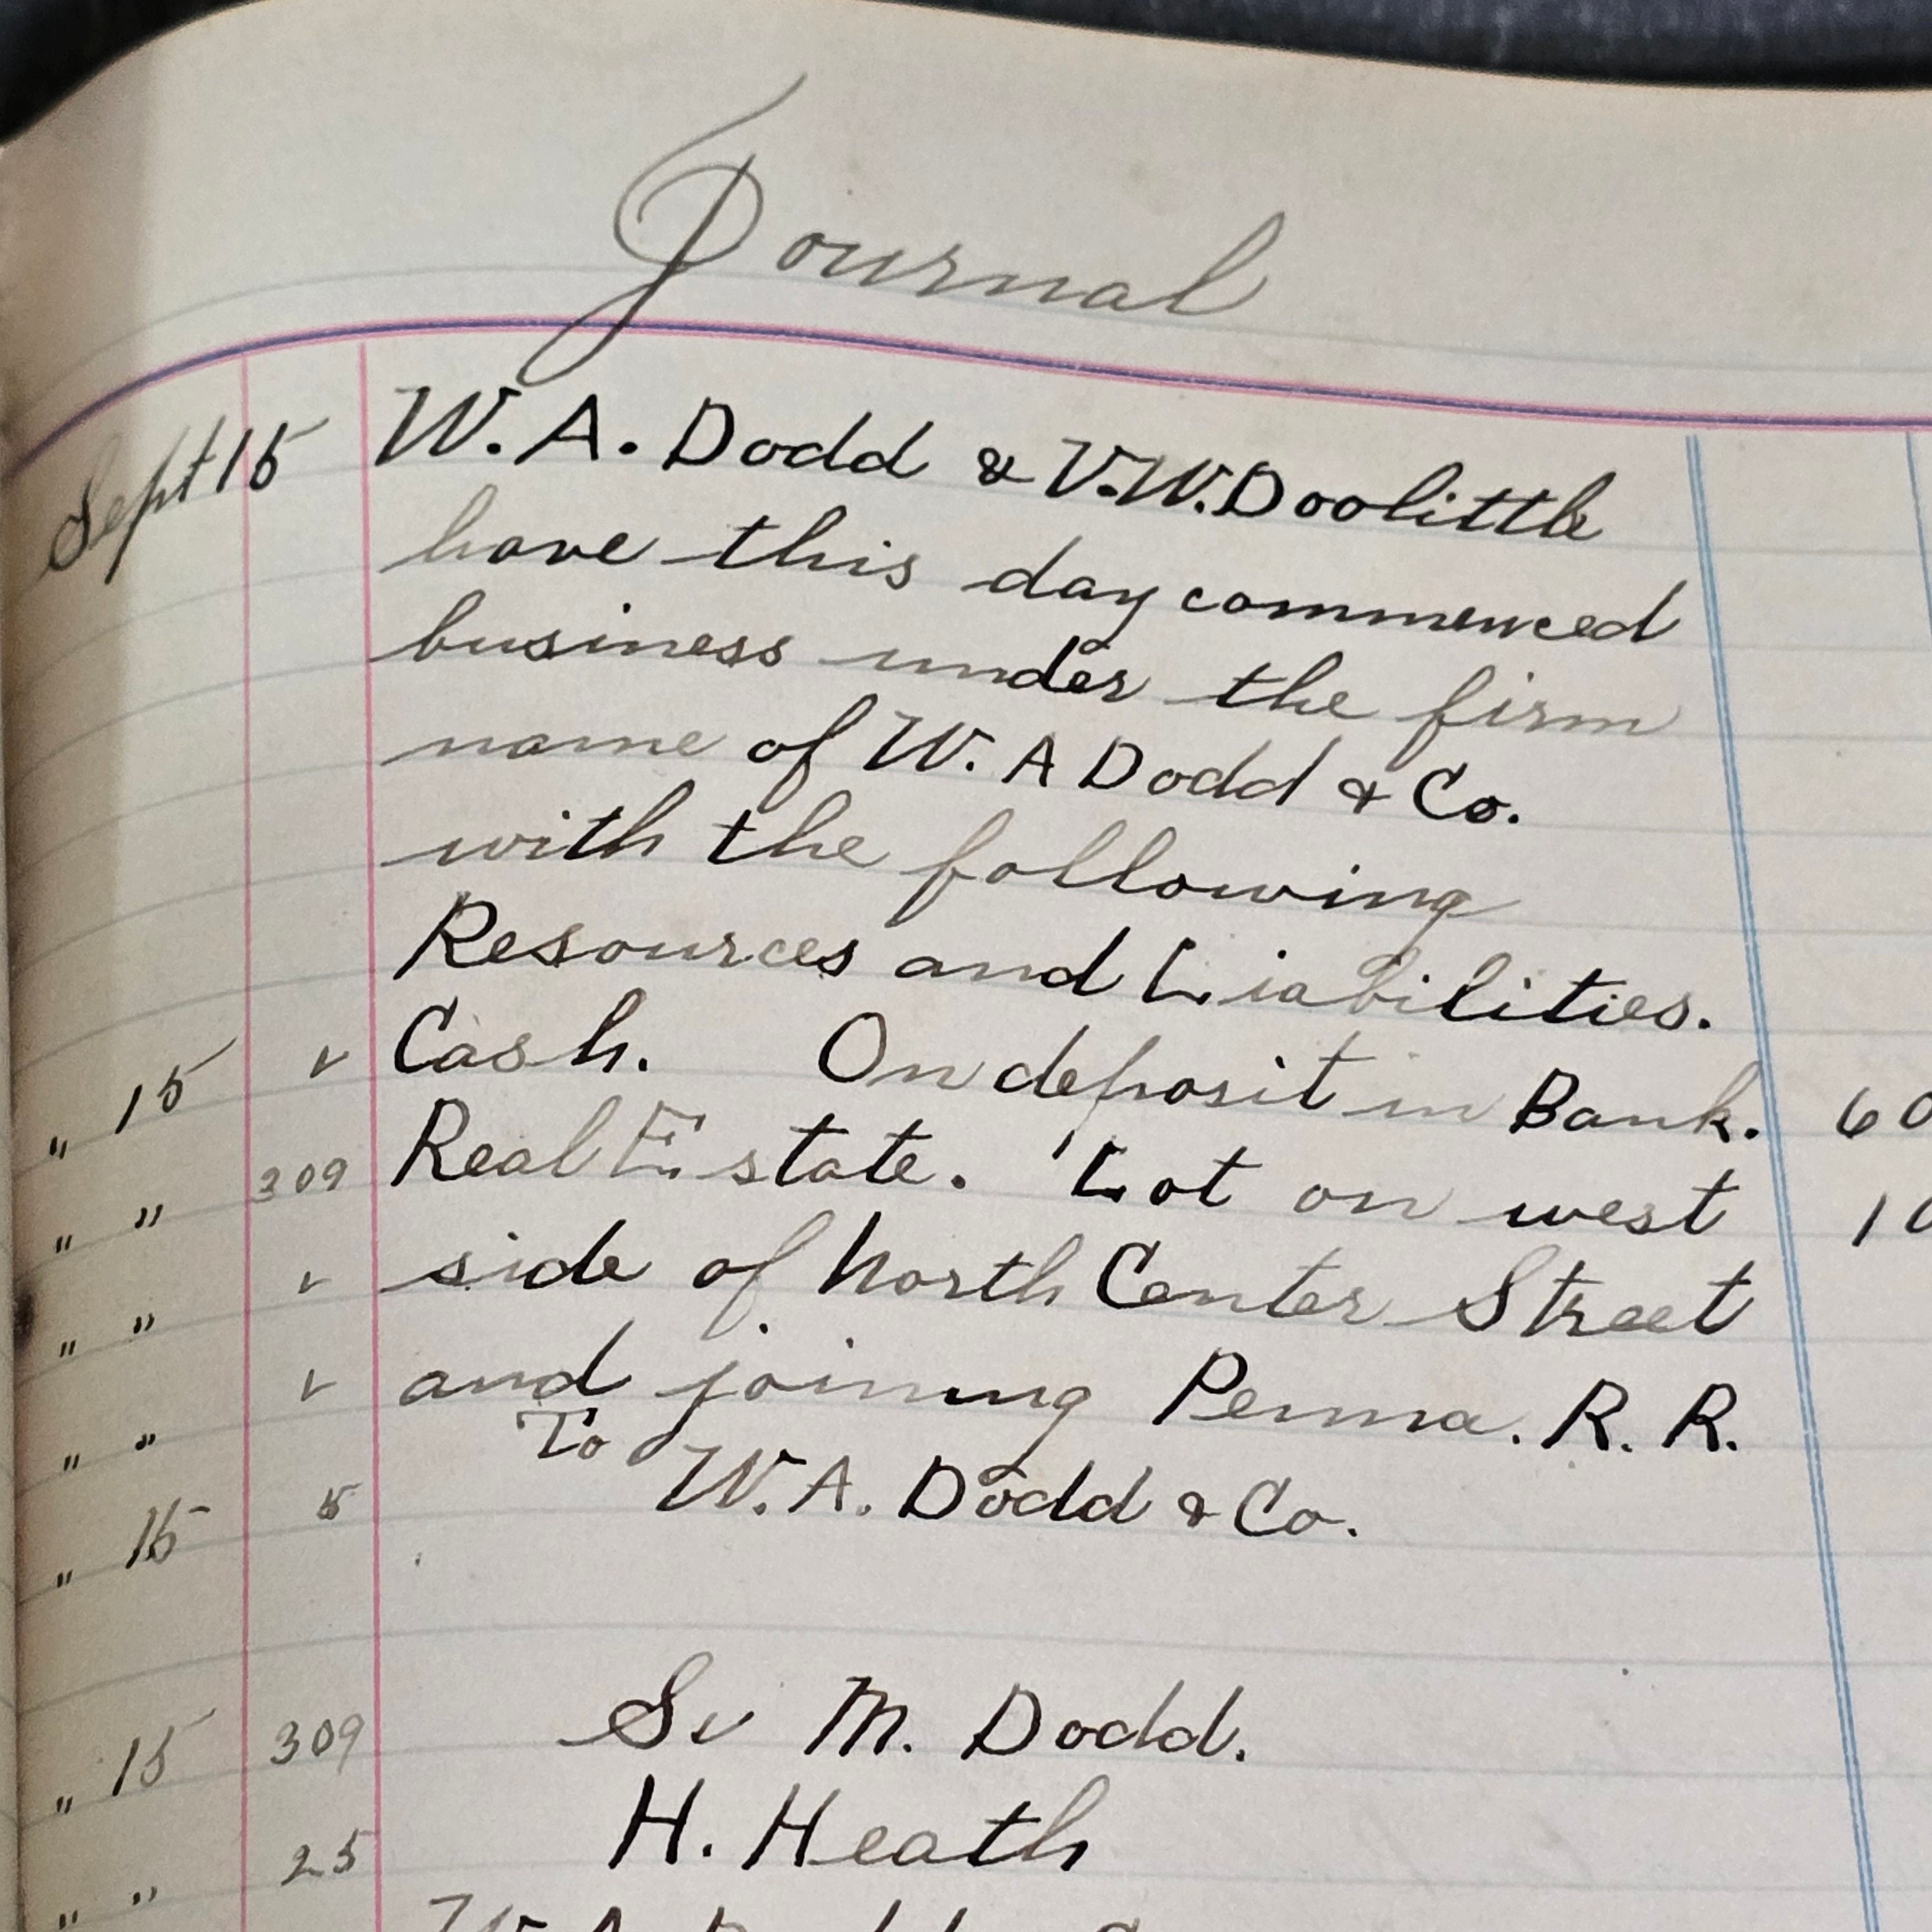 Journal
Sept 15 W. A. Dodd & V. W. Doolittle
have this day commenced
business under the firm
name of W. A Dodd & Co.
with the following
Resources and Liabilities.
" 15 ✓ Cash. On deposit in Bank. 60
" " 309 Real Estate. Lot on west 10
" " ✓ side of North Center Street
" " ✓ and joining Penna. R. R.
" 15 15 To W. A. Dodd & Co.
" 15 309 M. Dodd.
" " 25 H. Heath